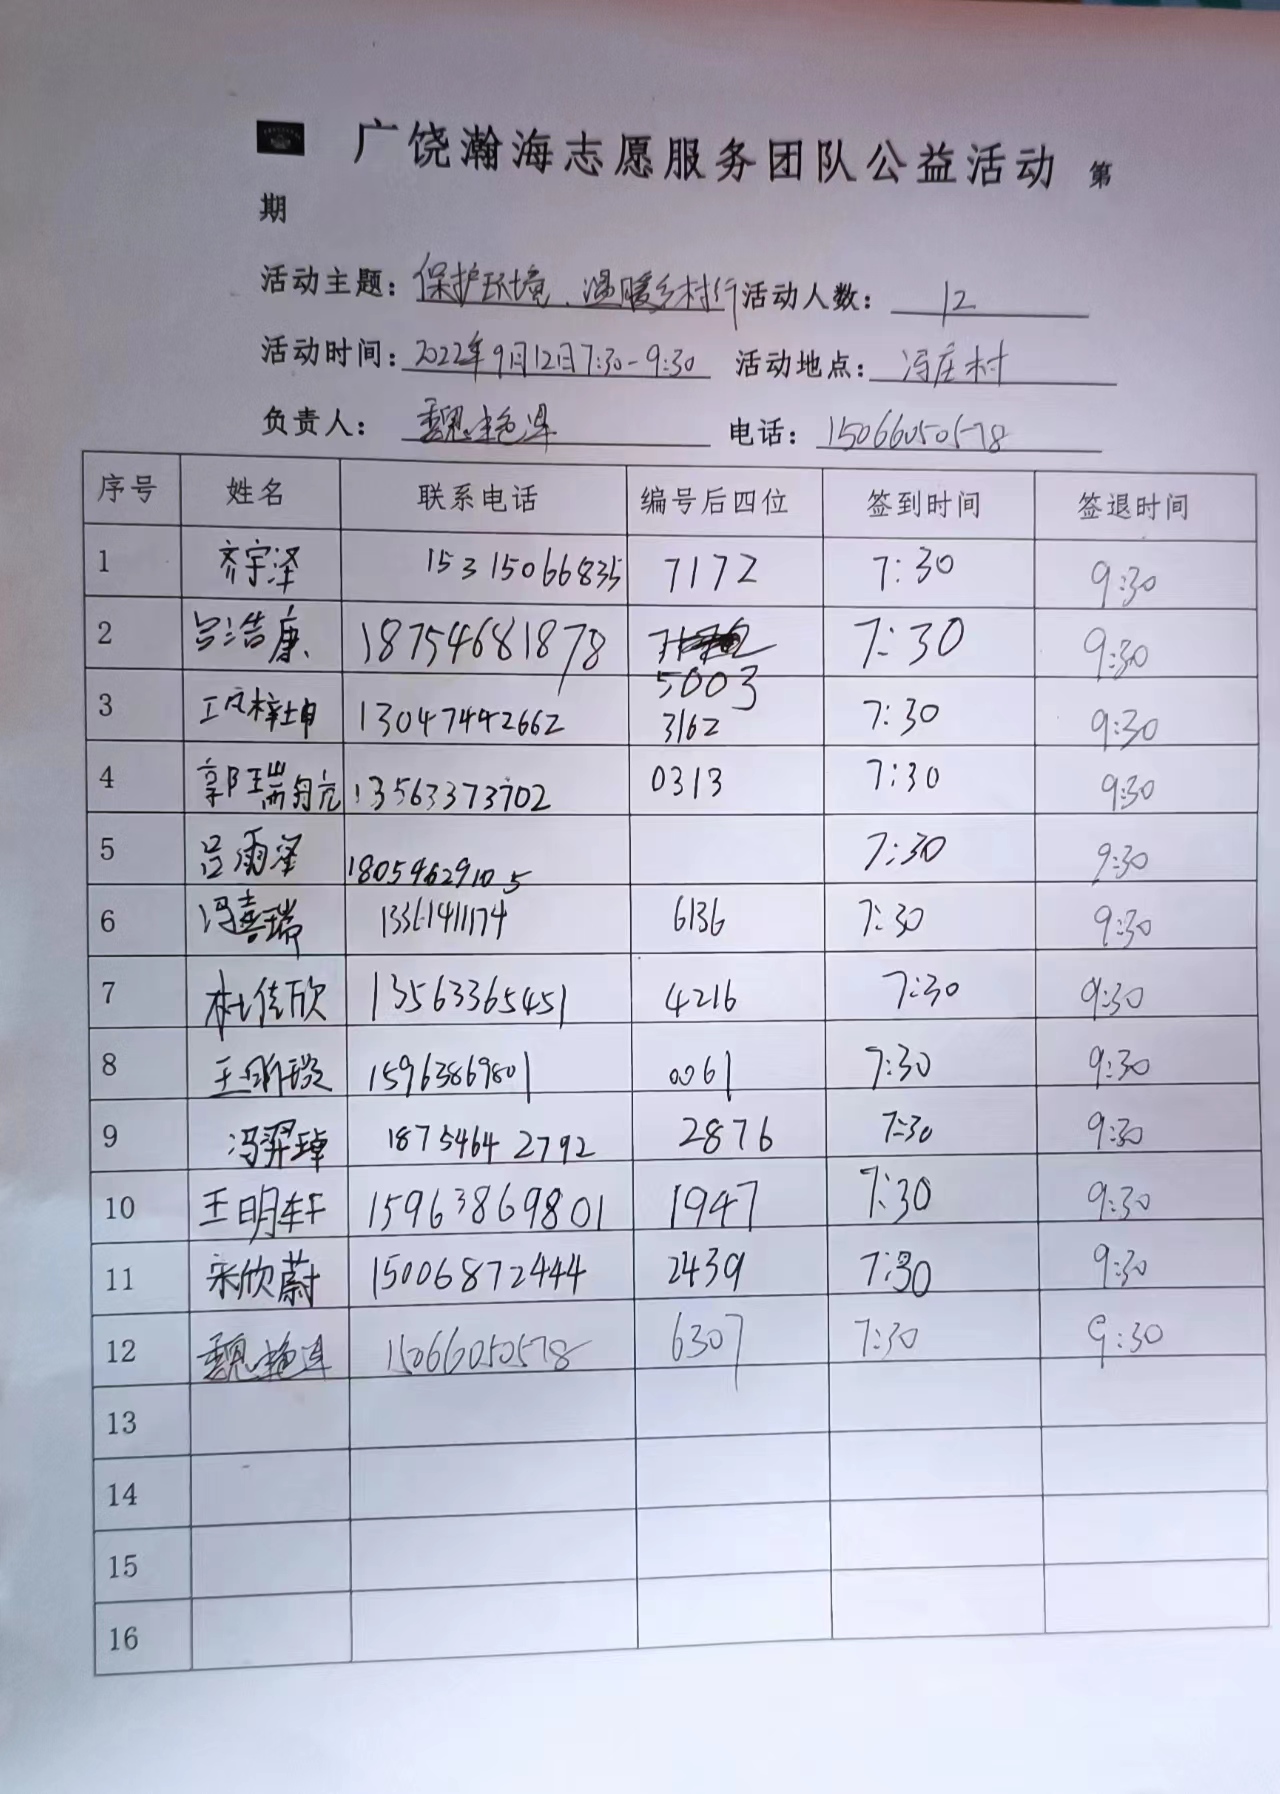 广饶瀚海志愿服务团队公益活动 第
期
活动主题：保护环境、温暖乡村行 活动人数：12
活动时间：2022年9月12日7:30-9:30 活动地点：冯庄村
负责人：魏艳泽 电话：15066050578
序号 姓名 联系电话 编号后四位 签到时间 签退时间
1 齐宇泽 15315066835 7172 7:30 9:30
2 吕浩康 18754681878 5003 7:30 9:30
3 梓坤 13047442662 3162 7:30 9:30
4 郭瑞航 13563373702 0313 7:30 9:30
5 吕雨泽 18054629105 7:30 9:30
6 冯喜瑞 13361411174 6136 7:30 9:30
7 杜佳欣 13563365451 4216 7:30 9:30
8 王昕琰 15963869801 0061 7:30 9:30
9 冯羿璋 18754642792 2876 7:30 9:30
10 王明轩 15963869801 1947 7:30 9:30
11 宋欣蔚 15006872444 2439 7:30 9:30
12 魏艳泽 15066050578 6307 7:30 9:30
13
14
15
16